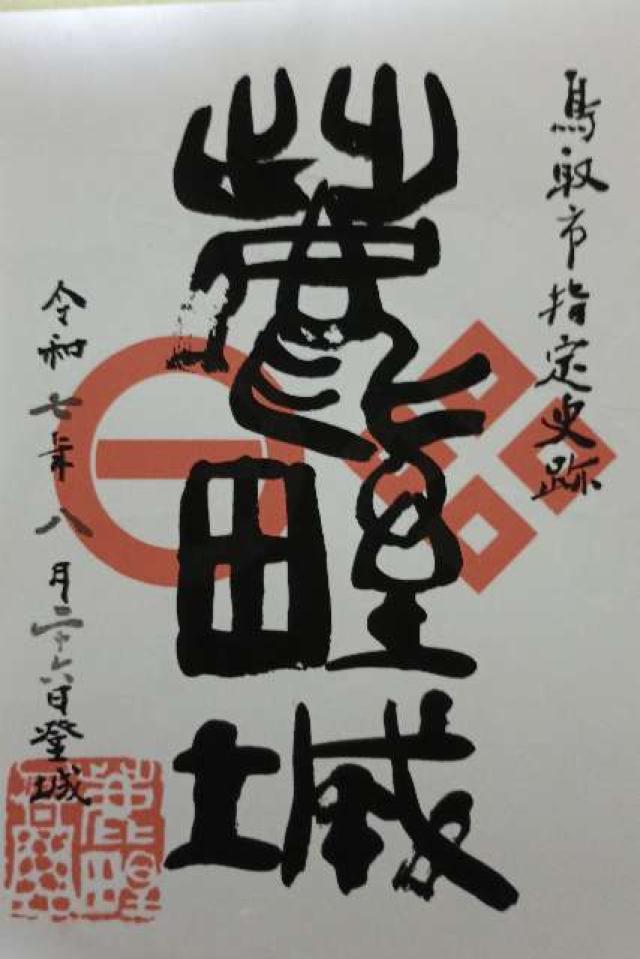 鳥取市指定史跡
鹿野城
令和七年八月二十六日登城